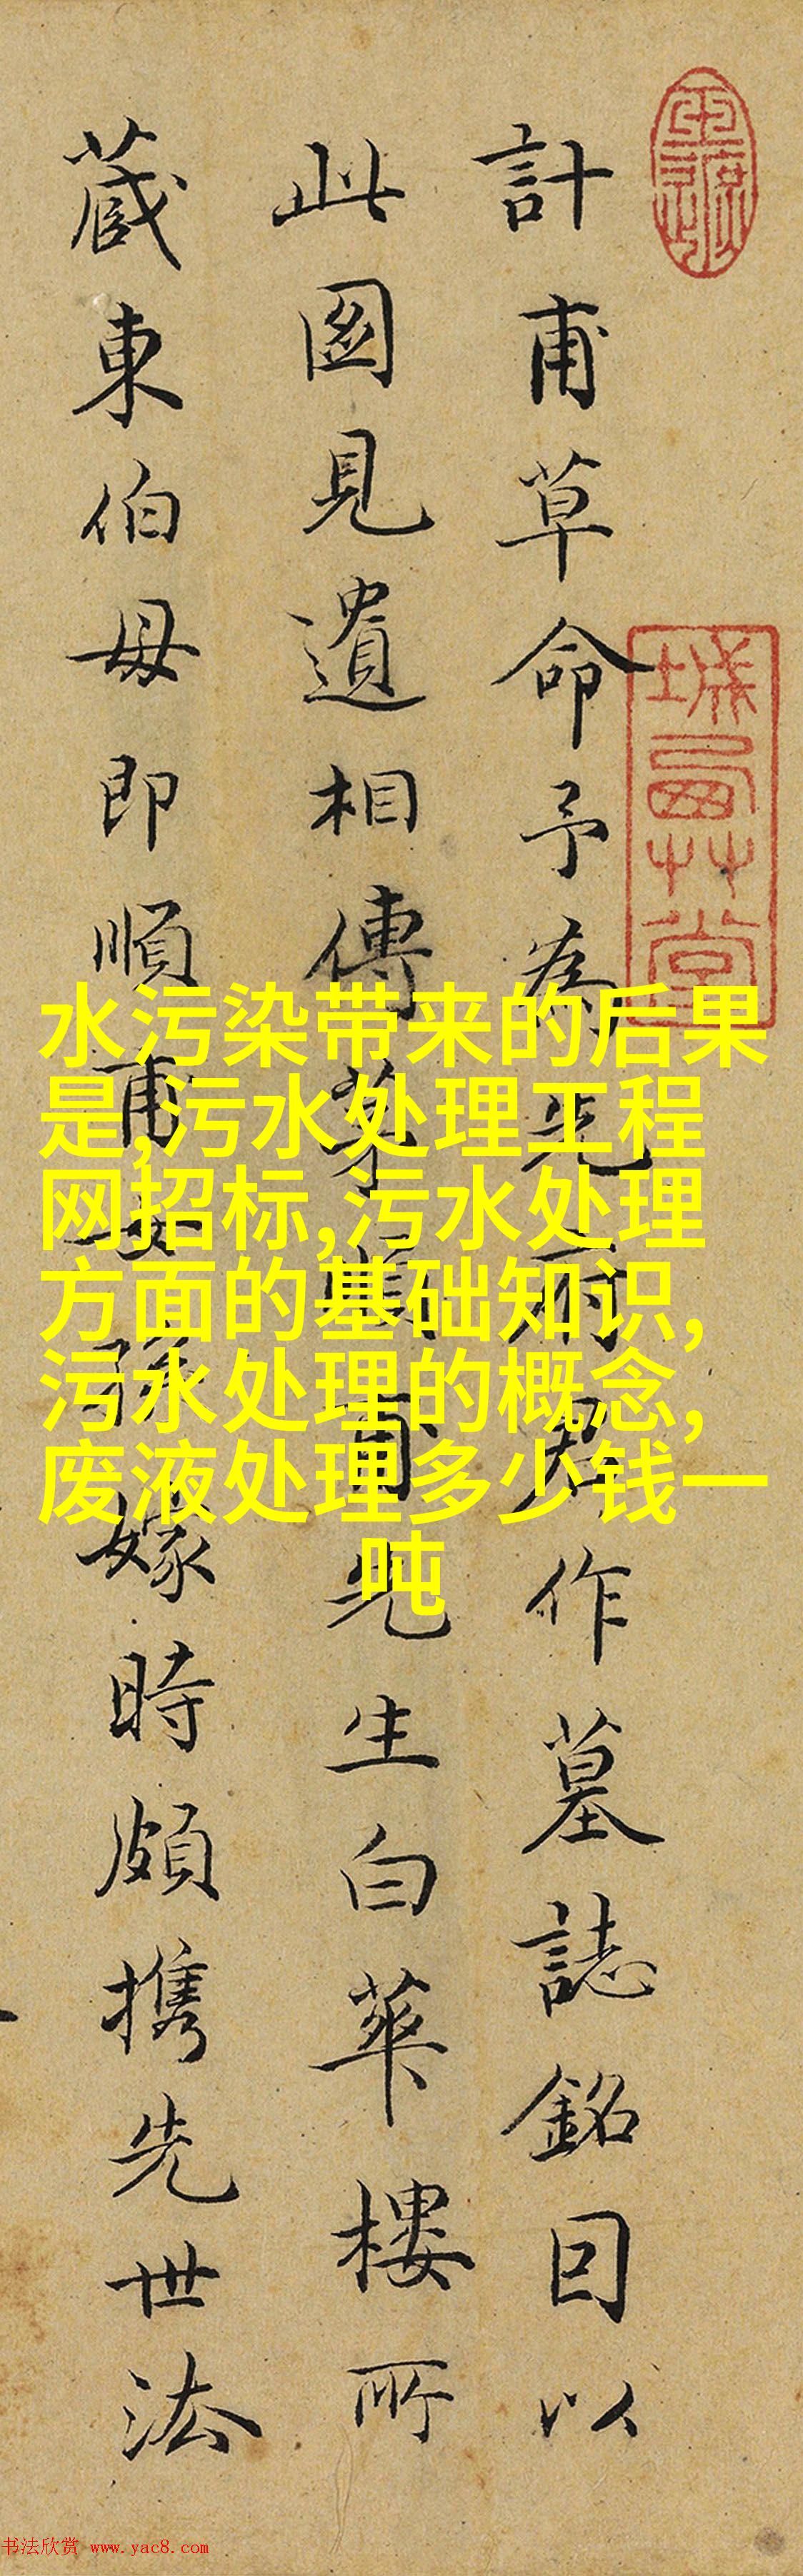 計甫草命予為先府君作墓誌銘因以
此圖見遺相傳茅順甫先生白華樓所
藏東伯母即順甫女孫嫁時頗攜先世法
水污染带来的后果
是,污水处理工程
网招标,污水处理
方面的基础知识,
污水处理的概念,
废液处理多少钱一
吨
书法欣赏 www.yac8.com